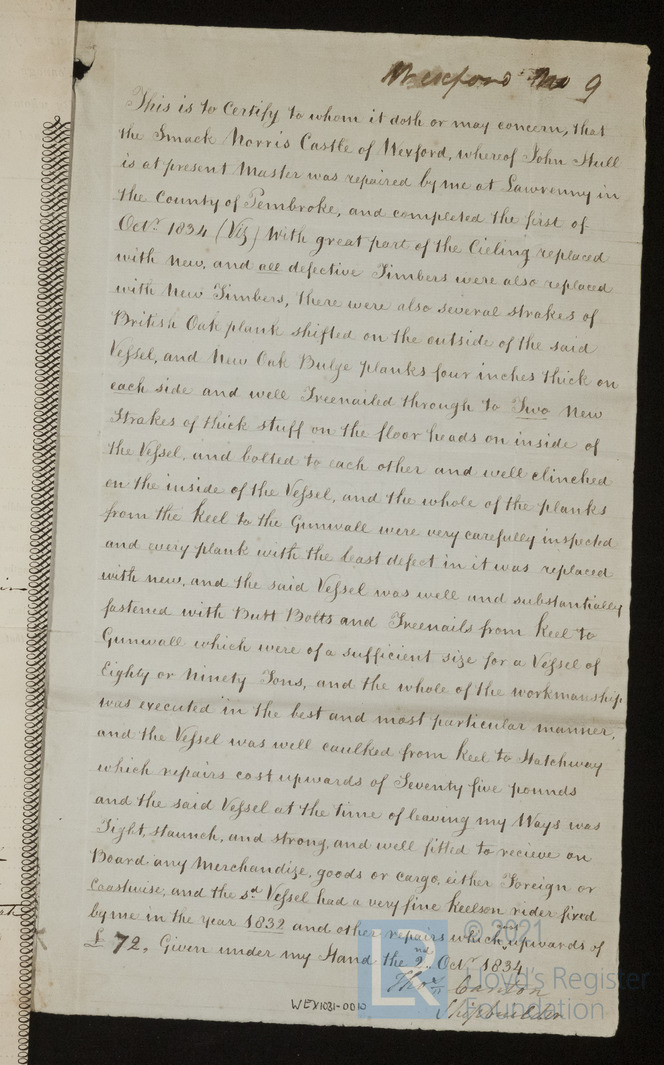 Wexford No 9
This is to Certify to whom it doth or may concern, that
the Smack Norris Castle of Wexford, whereof John Hull
is at present Master was repaired by me at Lawrenny in
the County of Pembroke, and completed the first of
Octr. 1834 (Viz) With great part of the Cieling replaced
with new, and all defective Timbers were also replaced
with New Timbers, there were also several strakes of
British Oak plank shifted on the outside of the said
Vessel, and New Oak Bulge planks four inches thick on
each side and well Treenailed through to Two New
Strakes of thick stuff on the floor heads on inside of
the Vessel, and bolted to each other and well clinched
on the inside of the Vessel, and the whole of the planks
from the Keel to the Gunwall were very carefully inspected
and every plank with the least defect in it was replaced
with new, and the said Vessel was well and substantially
fastened with Butt Bolts and Treenails from Keel to
Gunwall which were of a sufficient size for a Vessel of
Eighty or Ninety Tons, and the whole of the workmanship
was executed in the best and most particular manner,
and the Vessel was well caulked from Keel to Hatchway
which repairs cost upwards of Seventy five pounds
and the said Vessel at the time of leaving my Ways was
Tight, staunch, and strong, and well fitted to recieve on
Board any Merchandize, goods or cargo, either Foreign or
Coastwise, and the sd. Vessel had a very fine Keelson rider fixed
by me in the year 1832 and other repairs which upwards of
£ 72. Given under my Hand the 2nd Octr. 1834
Thos
Shipbuilder
WEX1031-0010
© 2021
LR
Lloyd's Register
Foundation